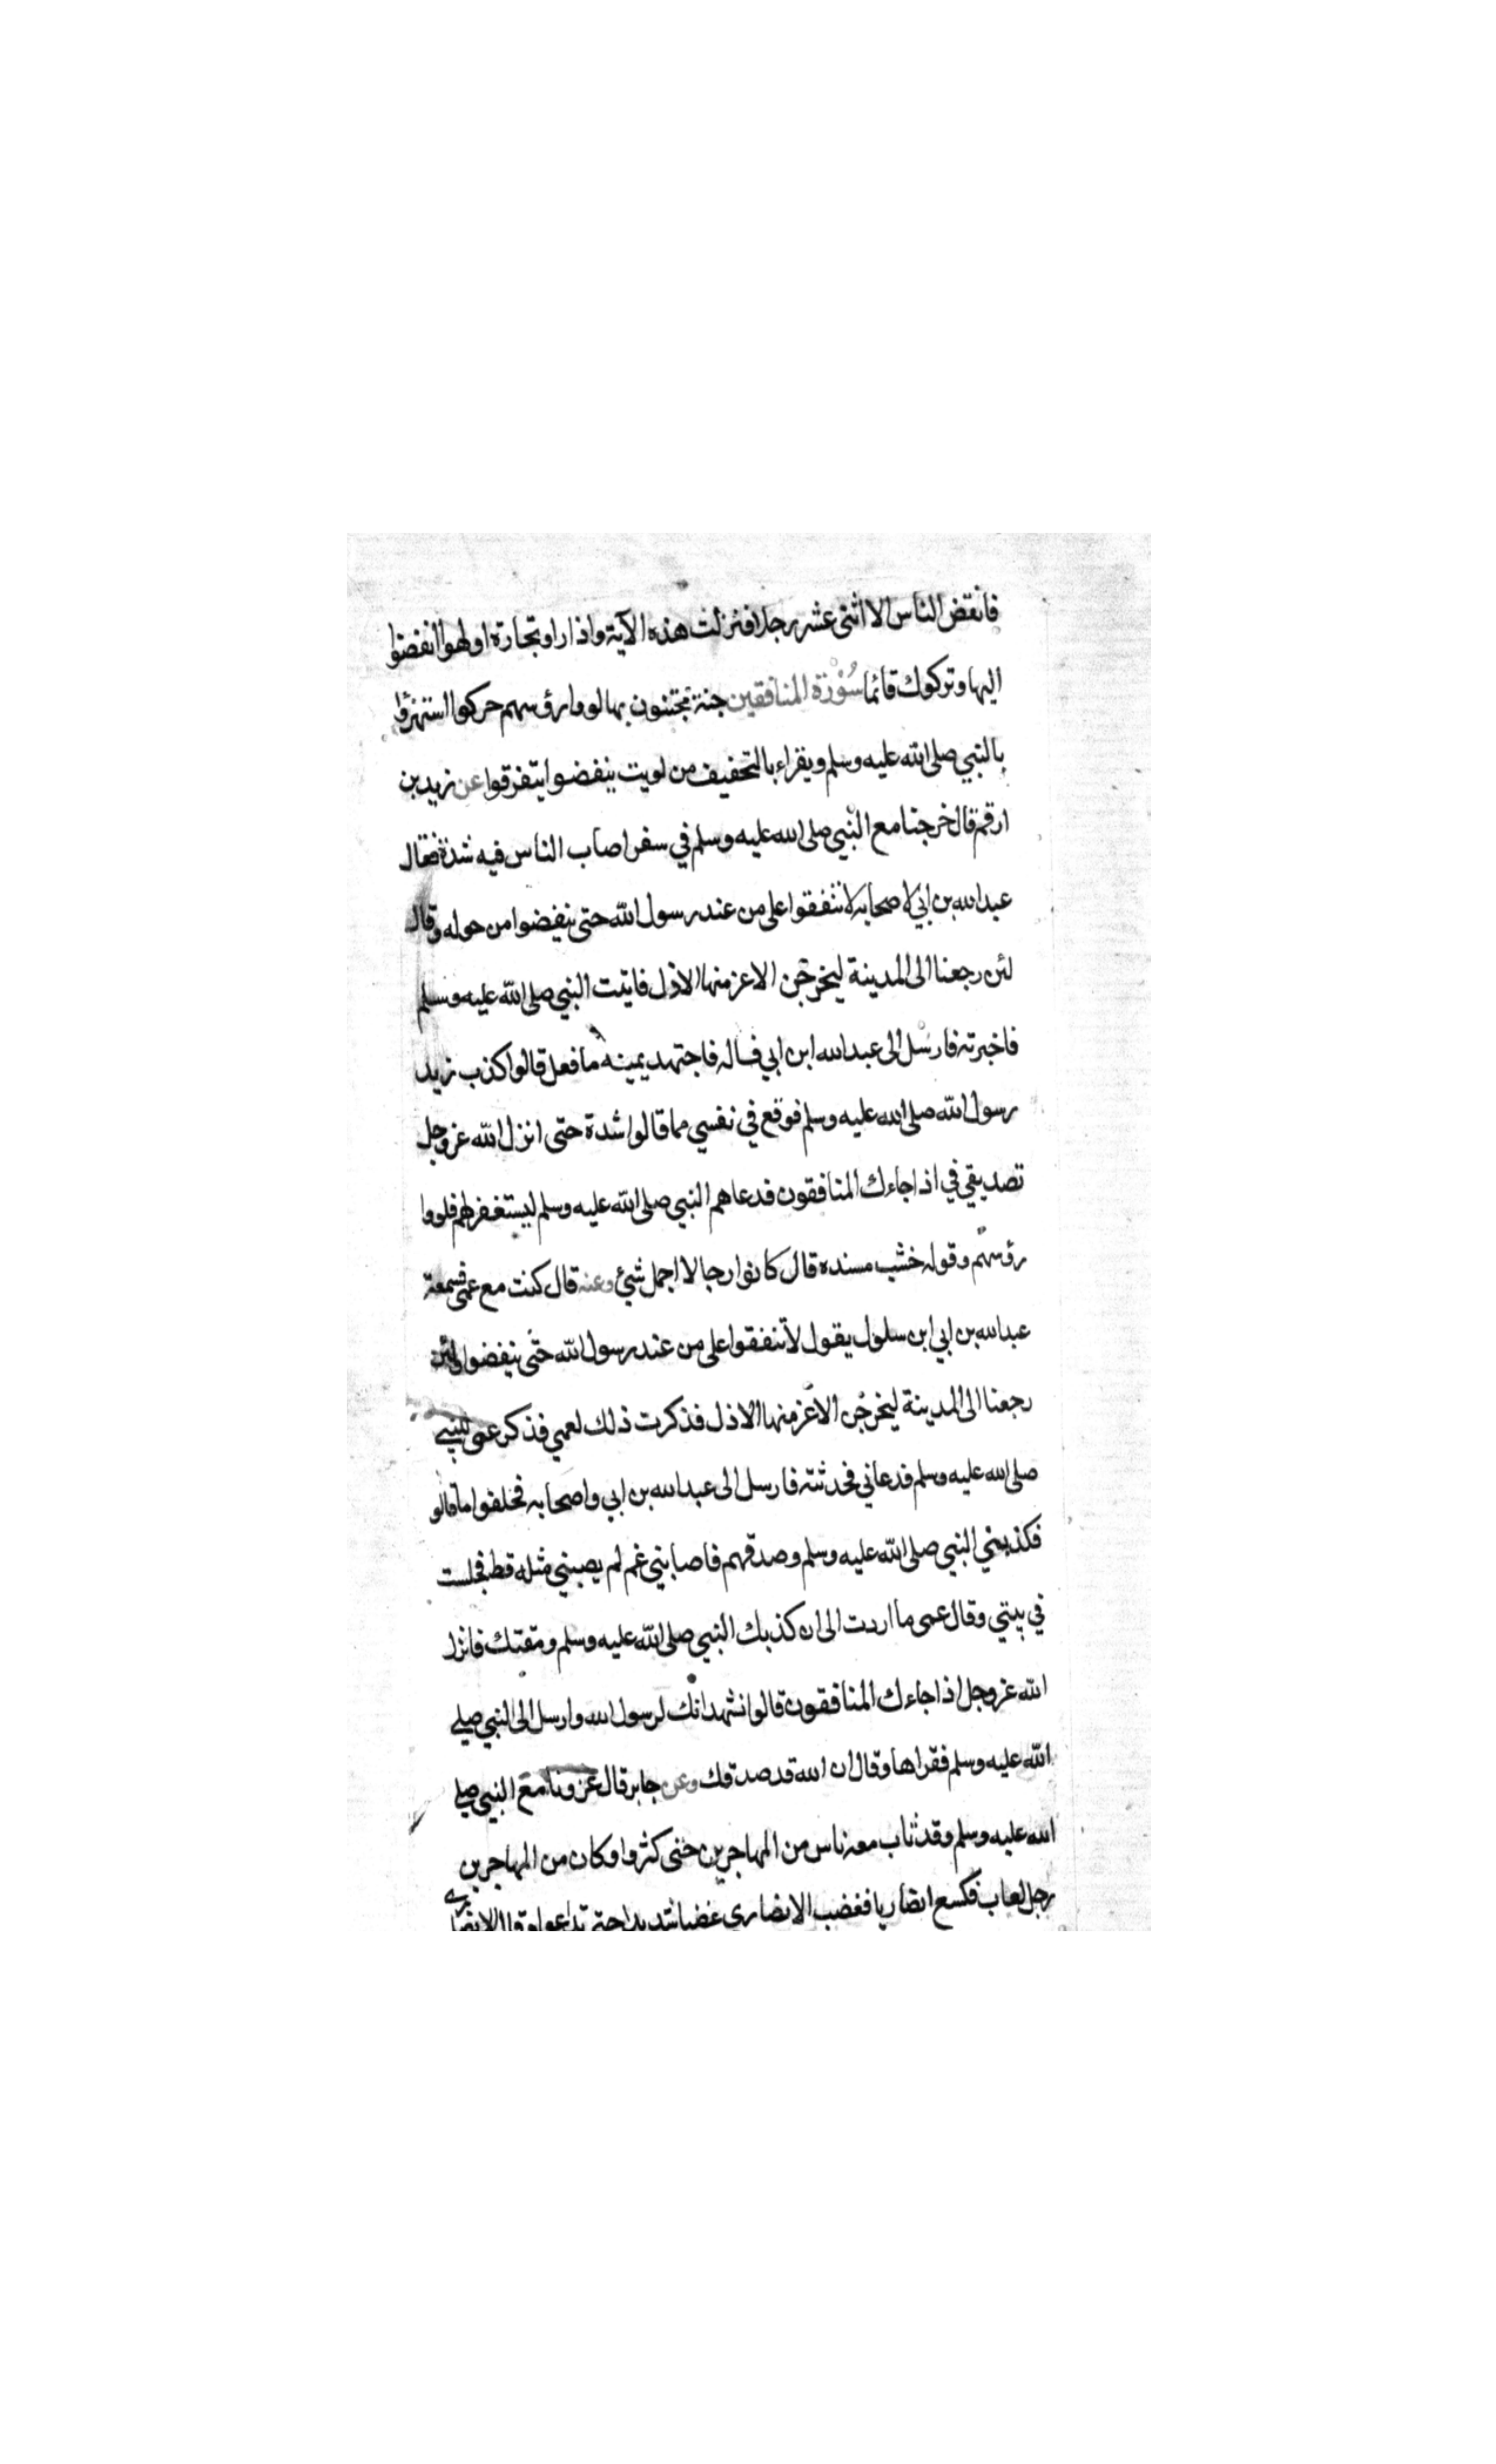 فانفض الناس الا اثنى عشر رجلا فنزلت هذه الآية واذا راوا تجارة او لهوا انفضوا
اليها وتركوك قائما سُوْرَة المنافقين جنة يجتنون بها لووا رؤسهم حركوا استهزؤا
بالنبي صلى الله عليه وسلم ويقراء بالتخفيف من لويت ينفضوا يتفرقوا عن زيد بن
ارقم قال خرجنا مع النبي صلى الله عليه وسلم في سفر اصاب الناس فيه شدة فقال
عبد الله بن ابي لاصحابه لا تنفقوا على من عند رسول الله حتى ينفضوا من حوله وقال
لئن رجعنا الى المدينة ليخرجن الاعز منها الاذل فاتيت النبي صلى الله عليه وسلم
فاخبرته فارسل الى عبد الله ابن ابي فساله فاجتهد يمينه ما فعل قالوا كذب زيد
رسول الله صلى الله عليه وسلم فوقع في نفسي مما قالوا شدة حتى انزل الله عز وجل
تصديقي في اذا جاءك المنافقون فدعاهم النبي صلى الله عليه وسلم ليستغفر لهم فلووا
رؤسهم وقوله خشب مسنده قال كانوا رجالا اجمل شئ وعنه قال كنت مع عمى فسمعت
عبد الله بن ابي ابن سلول يقول لا تنفقوا على من عند رسول الله حتى ينفضوا ولئن
رجعنا الى المدينة ليخرجن الاعز منها الاذل فذكرت ذلك لعمي فذكر عمى للنبي
صلى الله عليه وسلم فدعاني فحدثته فارسل الى عبد الله بن ابي واصحابه فحلفوا ما قالو
فكذبني النبي صلى الله عليه وسلم وصدقهم فاصابني غم لم يصبني مثله قط فجلست
في بيتي وقال عمى ما اردت الى ان كذبك النبي صلى الله عليه وسلم ومقتك فانزل
الله عز وجل اذا جاءك المنافقون قالوا نشهد انك لرسول الله وارسل الى النبي صلى
الله عليه وسلم فقراها وقال ان الله قد صدقك وعن جابر قال غزونا مع النبي صلى
الله عليه وسلم وقد ثاب معه ناس من المهاجرين حتى كثروا وكان من المهاجرين
رجل لعاب فكسع انصاريا فغضب الانصارى غضبا شديدا حتى تداعوا وقال الانصارى